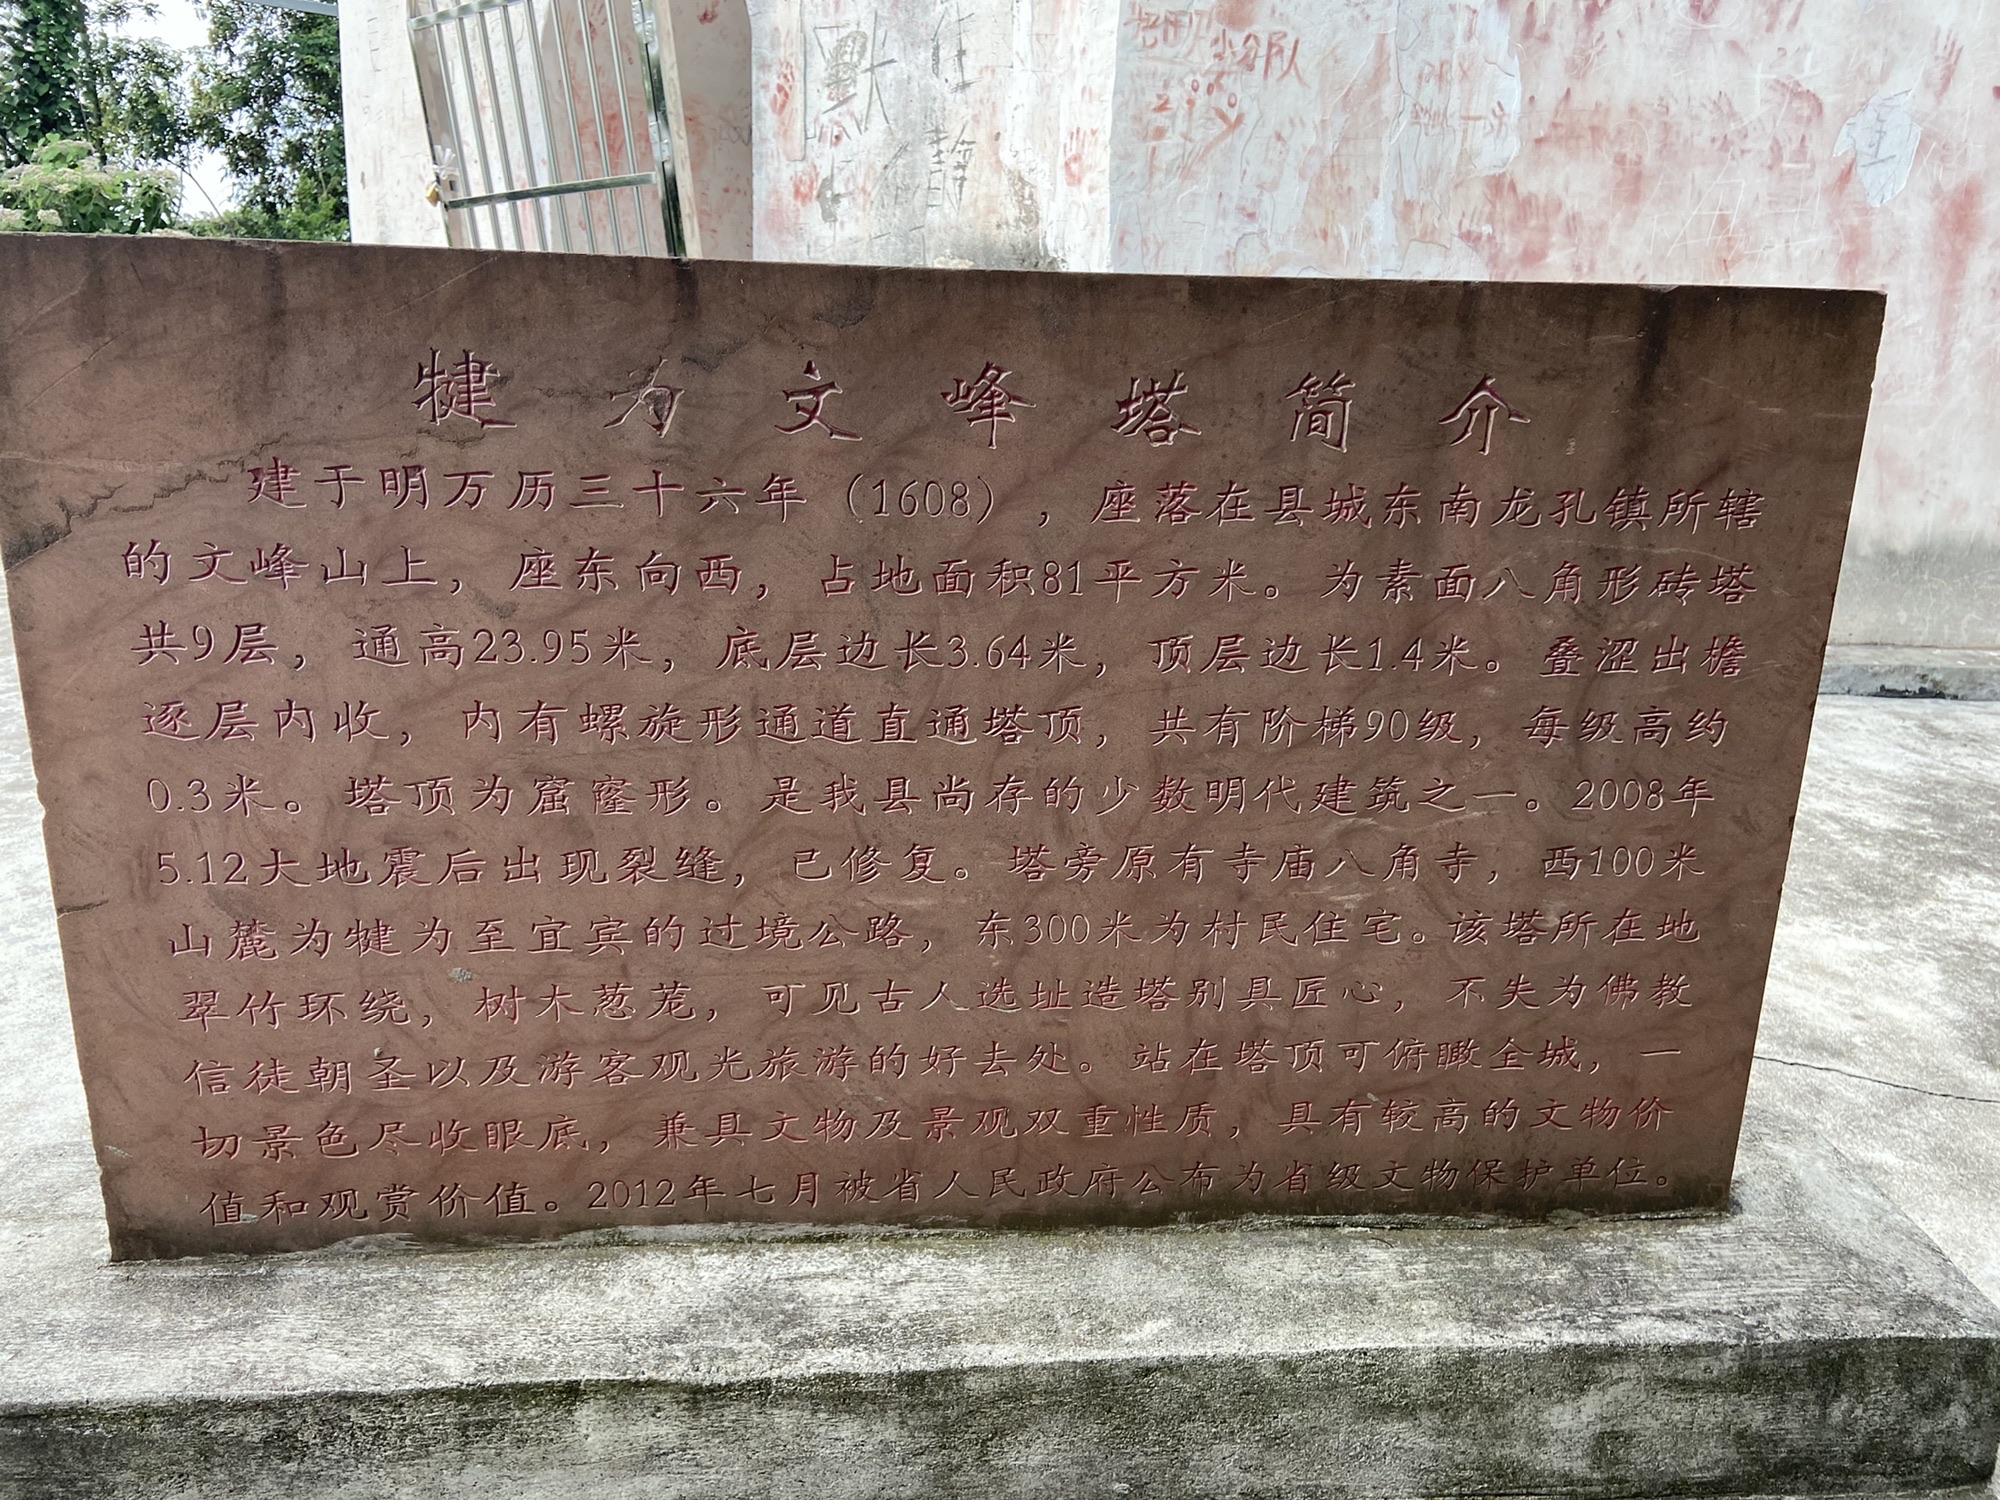 犍为文峰塔简介
建于明万历三十六年（1608），座落在县城东南龙孔镇所辖
的文峰山上，座东向西，占地面积81平方米。为素面八角形砖塔
共9层，通高23.95米，底层边长3.64米，顶层边长1.4米。叠涩出檐
逐层内收，内有螺旋形通道直通塔顶，共有阶梯90级，每级高约
0.3米。塔顶为窟窿形。是我县尚存的少数明代建筑之一。2008年
5.12大地震后出现裂缝，已修复。塔旁原有寺庙八角寺，西100米
山麓为犍为至宜宾的过境公路，东300米为村民住宅。该塔所在地
翠竹环绕，树木葱茏，可见古人选址造塔别具匠心，不失为佛教
信徒朝圣以及游客观光旅游的好去处。站在塔顶可俯瞰全城，一
切景色尽收眼底，兼具文物及景观双重性质，具有较高的文物价
值和观赏价值。2012年七月被省人民政府公布为省级文物保护单位。